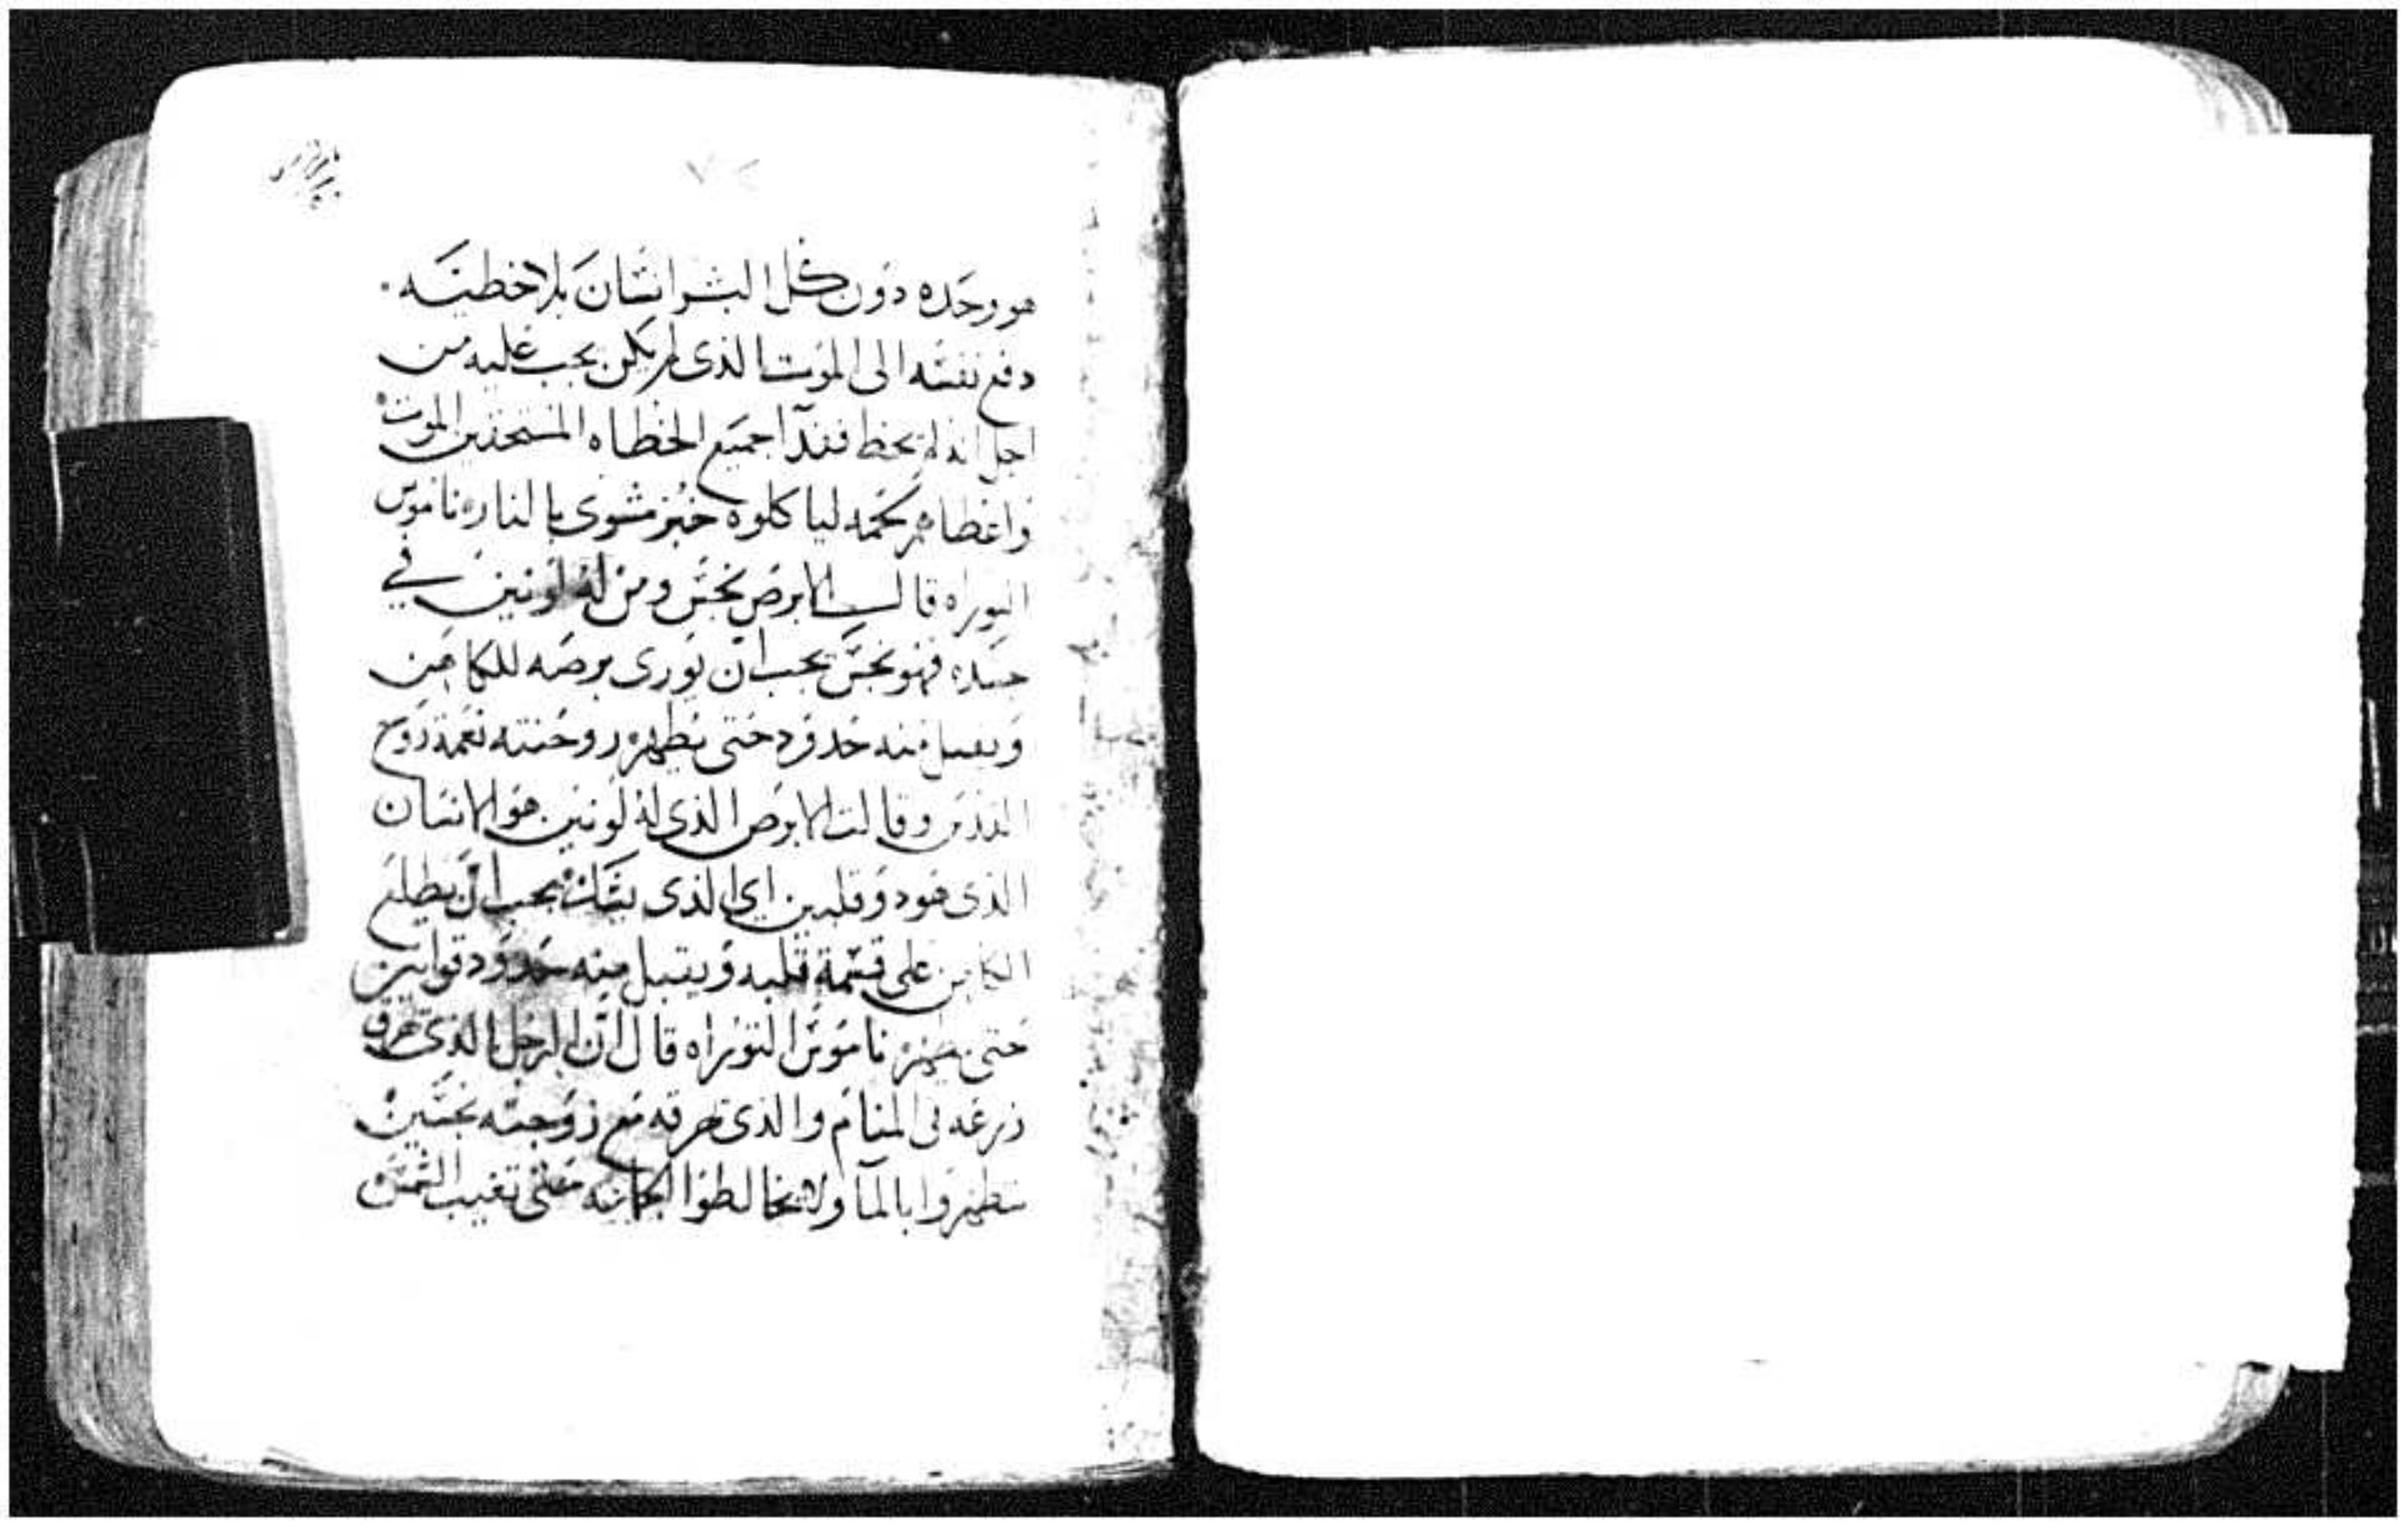 هو وحده دون كل البشر انسان بلا خطيه.
دفع نفسه الى الموت الذى لم يكن يجب عليه من
اجل انه لم يخط ففدا جميع الخطاه المستحقين الموت
واعطاهم لحمه لياكلوه خبز مشوى بالنار ناموس
التوراه قالت الابرص نجس ومن له لونين في
جسده فهو نجس يجب ان يورى برصه للكاهن
ويقبل منه حدود حتى يطهر روحنته نعمة روح
القدس وقالت الابرص الذى له لونين هو الانسان
الذى هو ذو قلبين اي الذى يشك يجب ان يطلع
الكاهن على قسمة قلبه ويقبل منه حدود قوانين
حتى يطهر ناموس التوراه قال ان الرجل الذى
زرعه في المنام والذى مع زوجته نجسين
يتطهروا بالمآ ولا يخالطوا تغيب الشمس